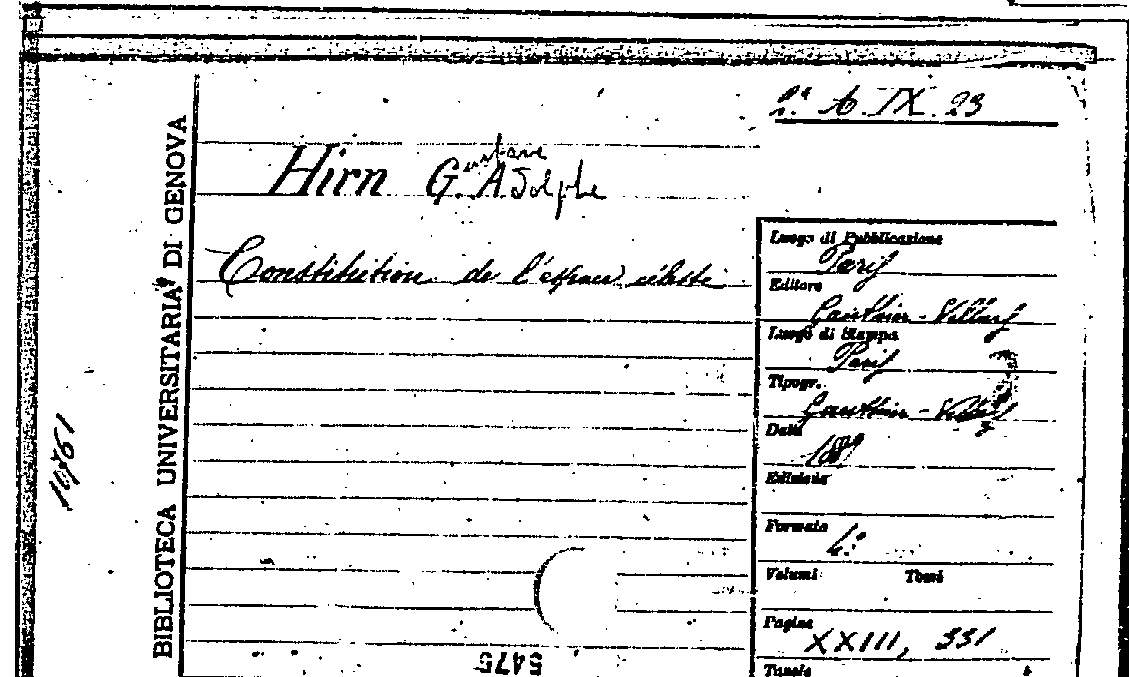 2ª A. IX. 23
BIBLIOTECA UNIVERSITARIA DI GENOVA
Hirn Gustave Adolphe
Constitution de l'espace céleste
Luogo di Pubblicazione
Paris
Editore
Gauthier-Villars
Luogo di Stampa
Paris
Tipogr.
Gauthier-Villars
Data
1889
Edizione
Formato
4º
Volumi Tomi
Pagine
XXIII, 331
Tavole
10761
5475